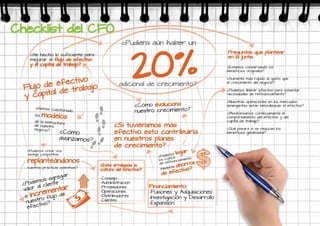 Checklist del CFO
¿He hecho lo suficiente para
mejorar el flujo de efectivo
y el capital de trabajo?
¿Pudiera aún haber un
20%
adicional de crecimiento?
Preguntas que plantear
en el junta
¿Estamos conservando los
beneficios originales?
¿Aumenta más rápido el gasto que
el crecimiento del negocio?
¿Podemos liberar efectivo para solventar
necesidades de refinanciamiento?
¿Nuestras operaciones en los mercados
emergentes están necesitadas de efectivo?
¿Monitoreamos continuamente el
comportamiento del efectivo y del
capital de trabajo?
¿Qué pasará si se mejoran los
beneficios generados?
Flujo de efectivo
y capital de trabajo
¿Hemos cuestionado
los modelos
de la
de nuestro
negocio?
¿Cómo
avanzamos?
¿Cómo evoluciona
nuestro crecimiento?
¿Si tuviéramos más
efectivo esto contribuiría
en nuestros planes
de crecimiento?
¿Podemos crear una
ventaja competitiva
replanteándonos
nuestras prácticas
¿Podemos agregar
valor al cliente
e incrementar
nuestro flujo de
efectivo?
$
¿Está arraigada la
cultura del efectivo?
-Consejo
-Administración
-Proveedores
-Operaciones
-Distribuidores
-Clientes
¿Podemos bajar
los costos
e
ahorros
de efectivo?
$
Financiamiento:
-Fusiones y Adquisiciones
-Investigación y Desarrollo
-Expansión